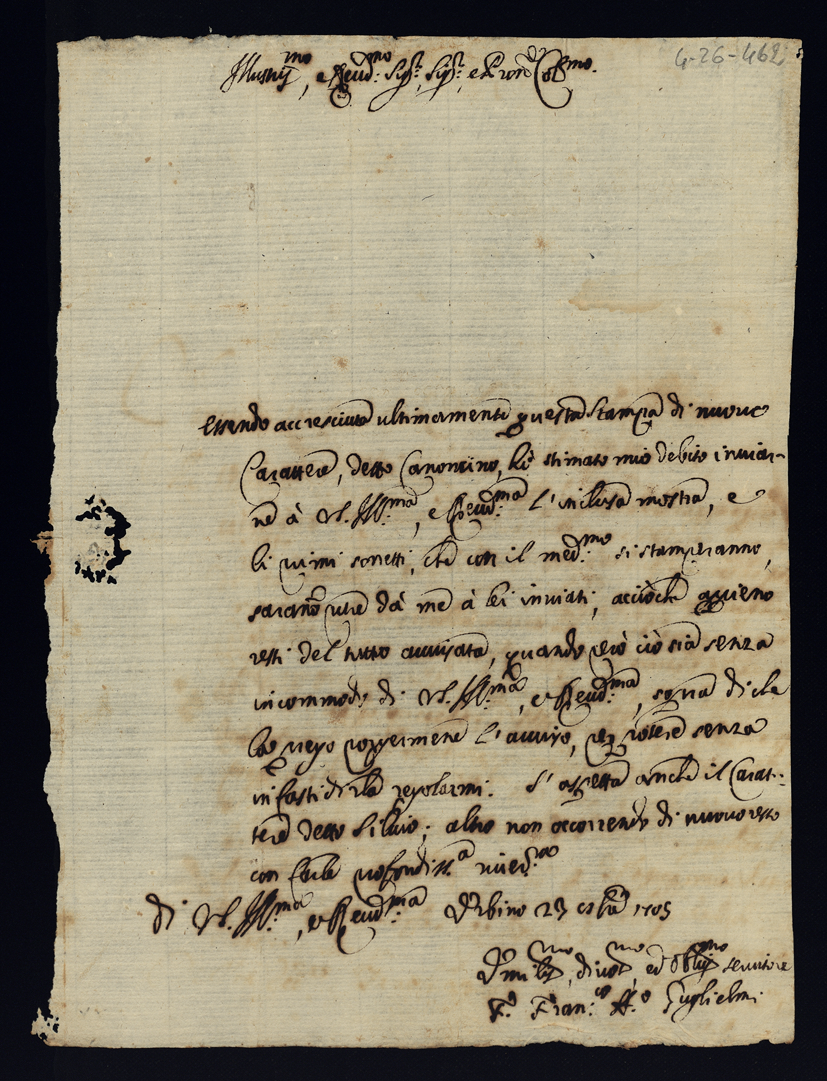 4-26-462
Illustriss.mo, e Reud.mo Sig.r Sig.r, e Pron Col.mo
Essendo accresciuta ultimamente questa stampa di nuouo
Carattere, detto Canoncino, hò stimato mio debito inuiar-
ne à VS. Ill.ma, e Reud.ma l'inclusa mostra, e
li primi sonetti, che con il med.mo si stamperanno,
sarano pure dà me à lei inuiati, acciòche appieno
resti del tutto auuisata, quando però ciò sia senza
incommodo di VS. Ill.ma, e Reud.ma, sopra di che
la prego porgermene l'auuiso, per potere senza
infastidirla regolarmi. S'aspetta anche il Carat-
tere detto Siluio; altro non occorrendo di nuouo resto
con farle profondiss.a riuer.za
di VS. Ill.ma, e Reud.ma Vrbino 23 ottobre 1705
Vmiliss.mo, diuot.mo, ed Oblig.mo seruitore
Fran.co Ant.o Guglielmi